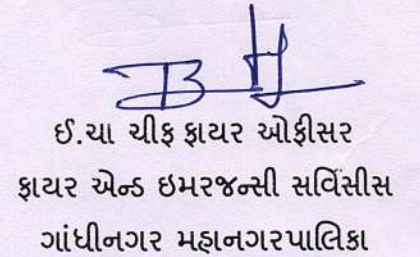 ઈ.ચા ચીફ ફાયર ઓફીસર
ફાયર એન્ડ ઇમરજન્સી સર્વિસીસ
ગાંધીનગર મહાનગરપાલિકા